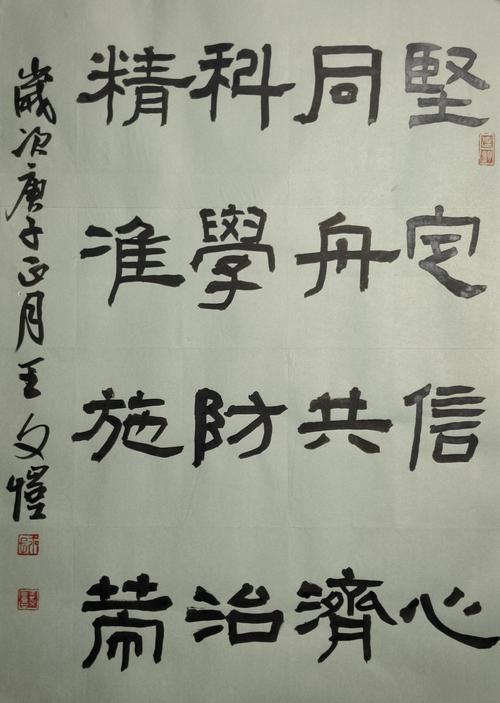 堅定信心
同舟共濟
科學防治
精准施策
歲次庚子正月王文愷